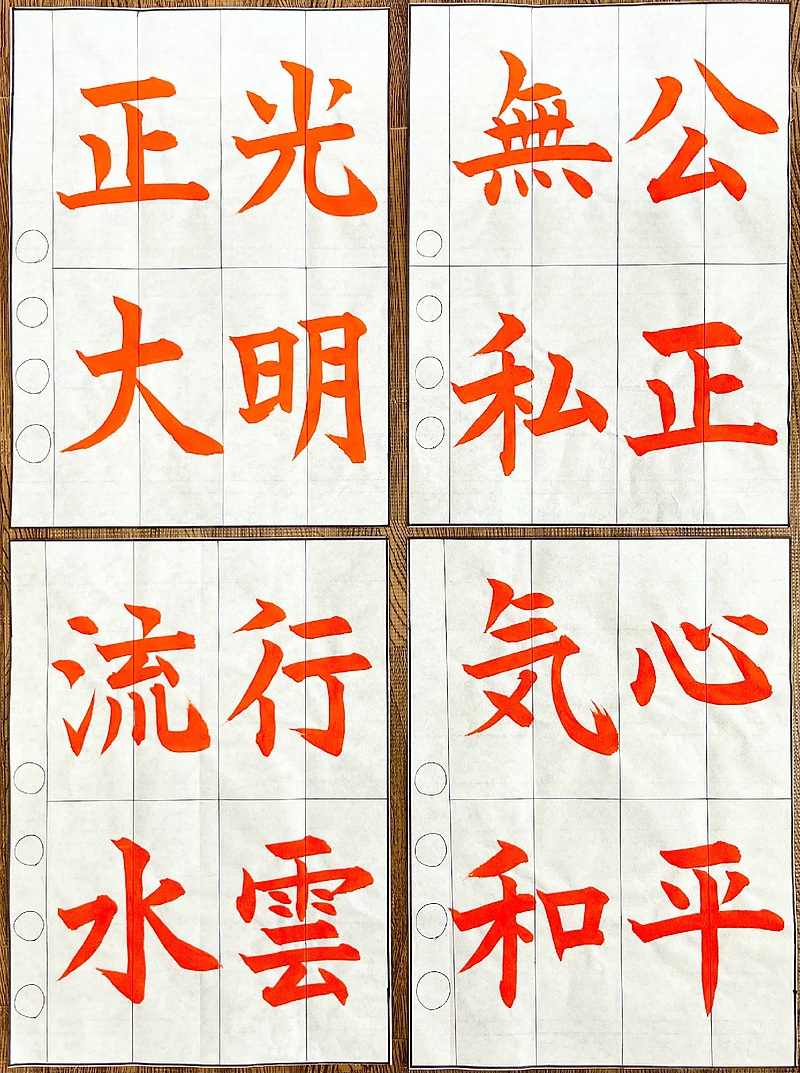 光明
正大
公正
無私
行雲
流水
心平
気和